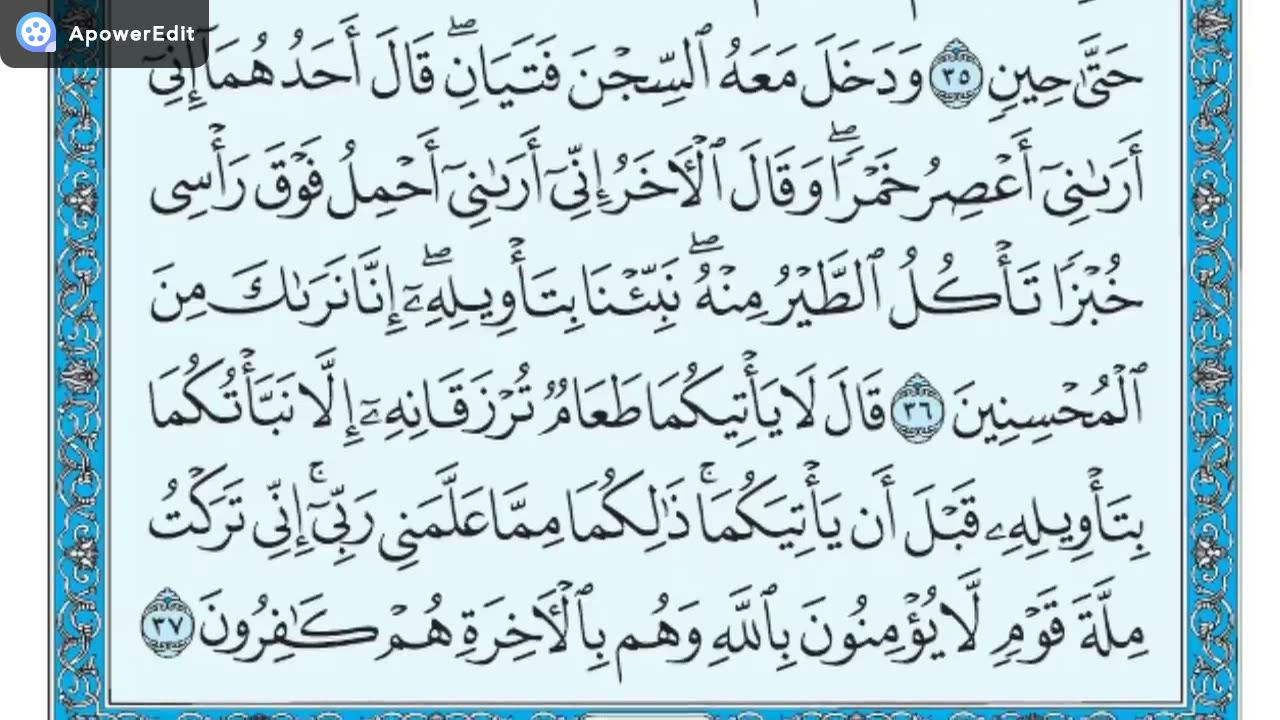 ApowerEdit
حَتَّىٰ حِينٍ ٣٥ وَدَخَلَ مَعَهُ ٱلسِّجْنَ فَتَيَانِۖ قَالَ أَحَدُهُمَآ إِنِّىٓ
أَرَىٰنِىٓ أَعْصِرُ خَمْرًاۖ وَقَالَ ٱلْأَخَرُ إِنِّىٓ أَرَىٰنِىٓ أَحْمِلُ فَوْقَ رَأْسِى
خُبْزًا تَأْكُلُ ٱلطَّيْرُ مِنْهُۖ نَبِّئْنَا بِتَأْوِيلِهِۦٓۖ إِنَّا نَرَىٰكَ مِنَ
ٱلْمُحْسِنِينَ ٣٦ قَالَ لَا يَأْتِيكُمَا طَعَامٌ تُرْزَقَانِهِۦٓ إِلَّا نَبَّأْتُكُمَا
بِتَأْوِيلِهِۦ قَبْلَ أَن يَأْتِيَكُمَاۚ ذَٰلِكُمَا مِمَّا عَلَّمَنِى رَبِّىٓۚ إِنِّى تَرَكْتُ
مِلَّةَ قَوْمٍ لَّا يُؤْمِنُونَ بِٱللَّهِ وَهُم بِٱلْأَخِرَةِ هُمْ كَٰفِرُونَ ٣٧